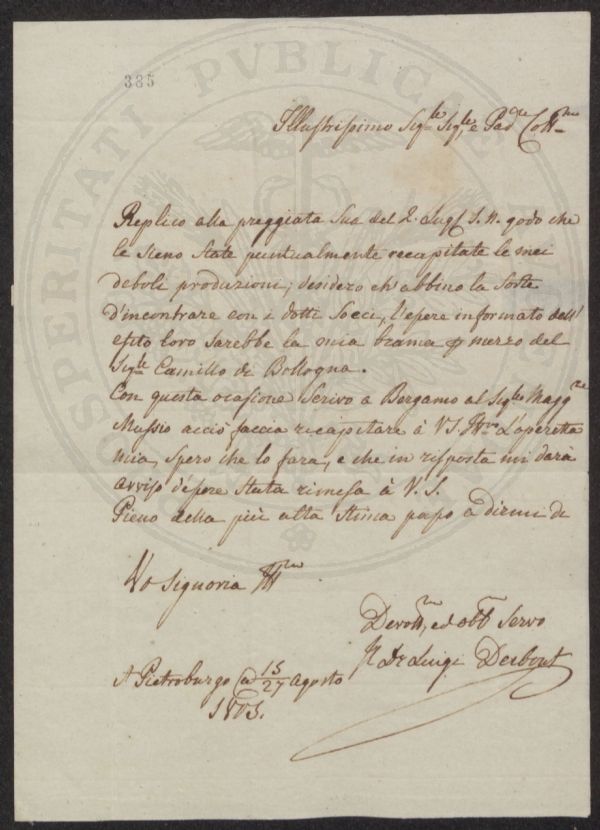 385
PROSPERITATI PVBLICAE
Illustrissimo Sigle Sigle, e Padne Collmo
Replico alla preggiata Sua del 2. Lugl S. N. godo che
le sieno state puntualmente recapitate le mei
deboli produzioni; desidero ch'abbino la sorte
d'incontrare con i dotti Socci, l'essere informato dell'
esito loro sarebbe la mia brama p mezzo del
Sigle Camillo di Bollogna.
Con questa ocasione Scrivo a Bergamo al Sigle Magg
Mussio acciò faccia ricapitare à VS. Illma L'operetta
mia, spero che lo fara, e che in risposta mi dara
avviso d'essere stata rimessa à V. S.
Pieno della più alta stima passo a dirmi di
Vo Signoria Illma
Devotmo, ed obb Servo
DeLuigi Desbout
A Pietroburgo 15/27 Agosto
1803.